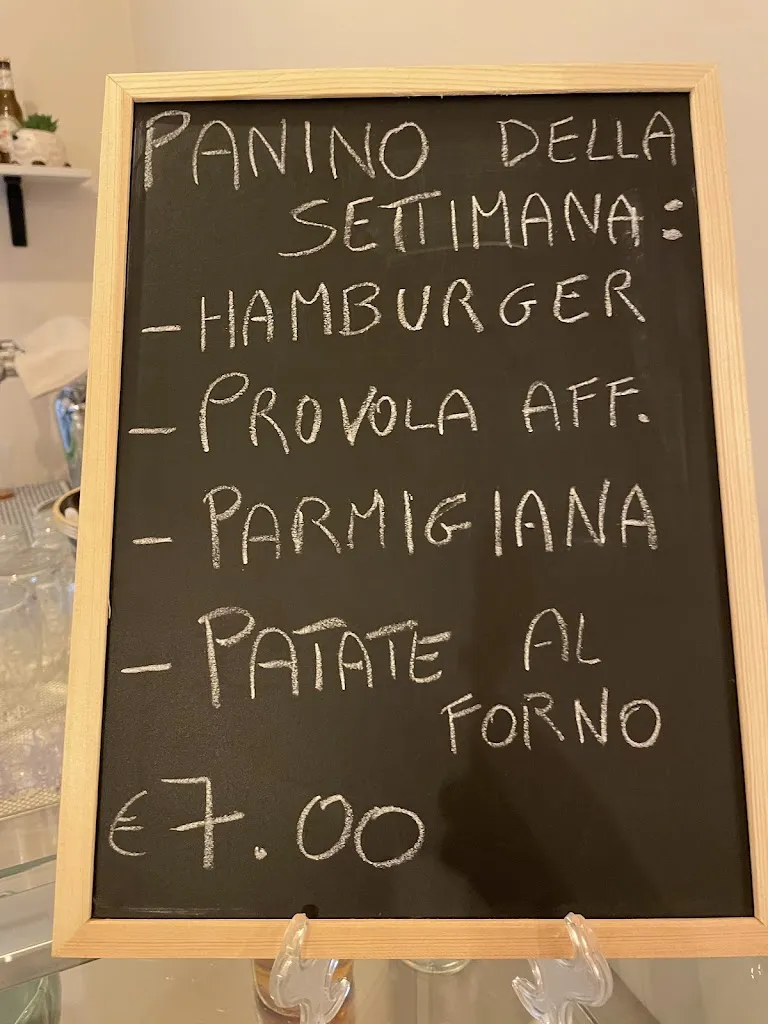 PANINO DELLA
SETTIMANA:
- HAMBURGER
- PROVOLA AFF.
- PARMIGIANA
- PATATE AL
FORNO
€7.00